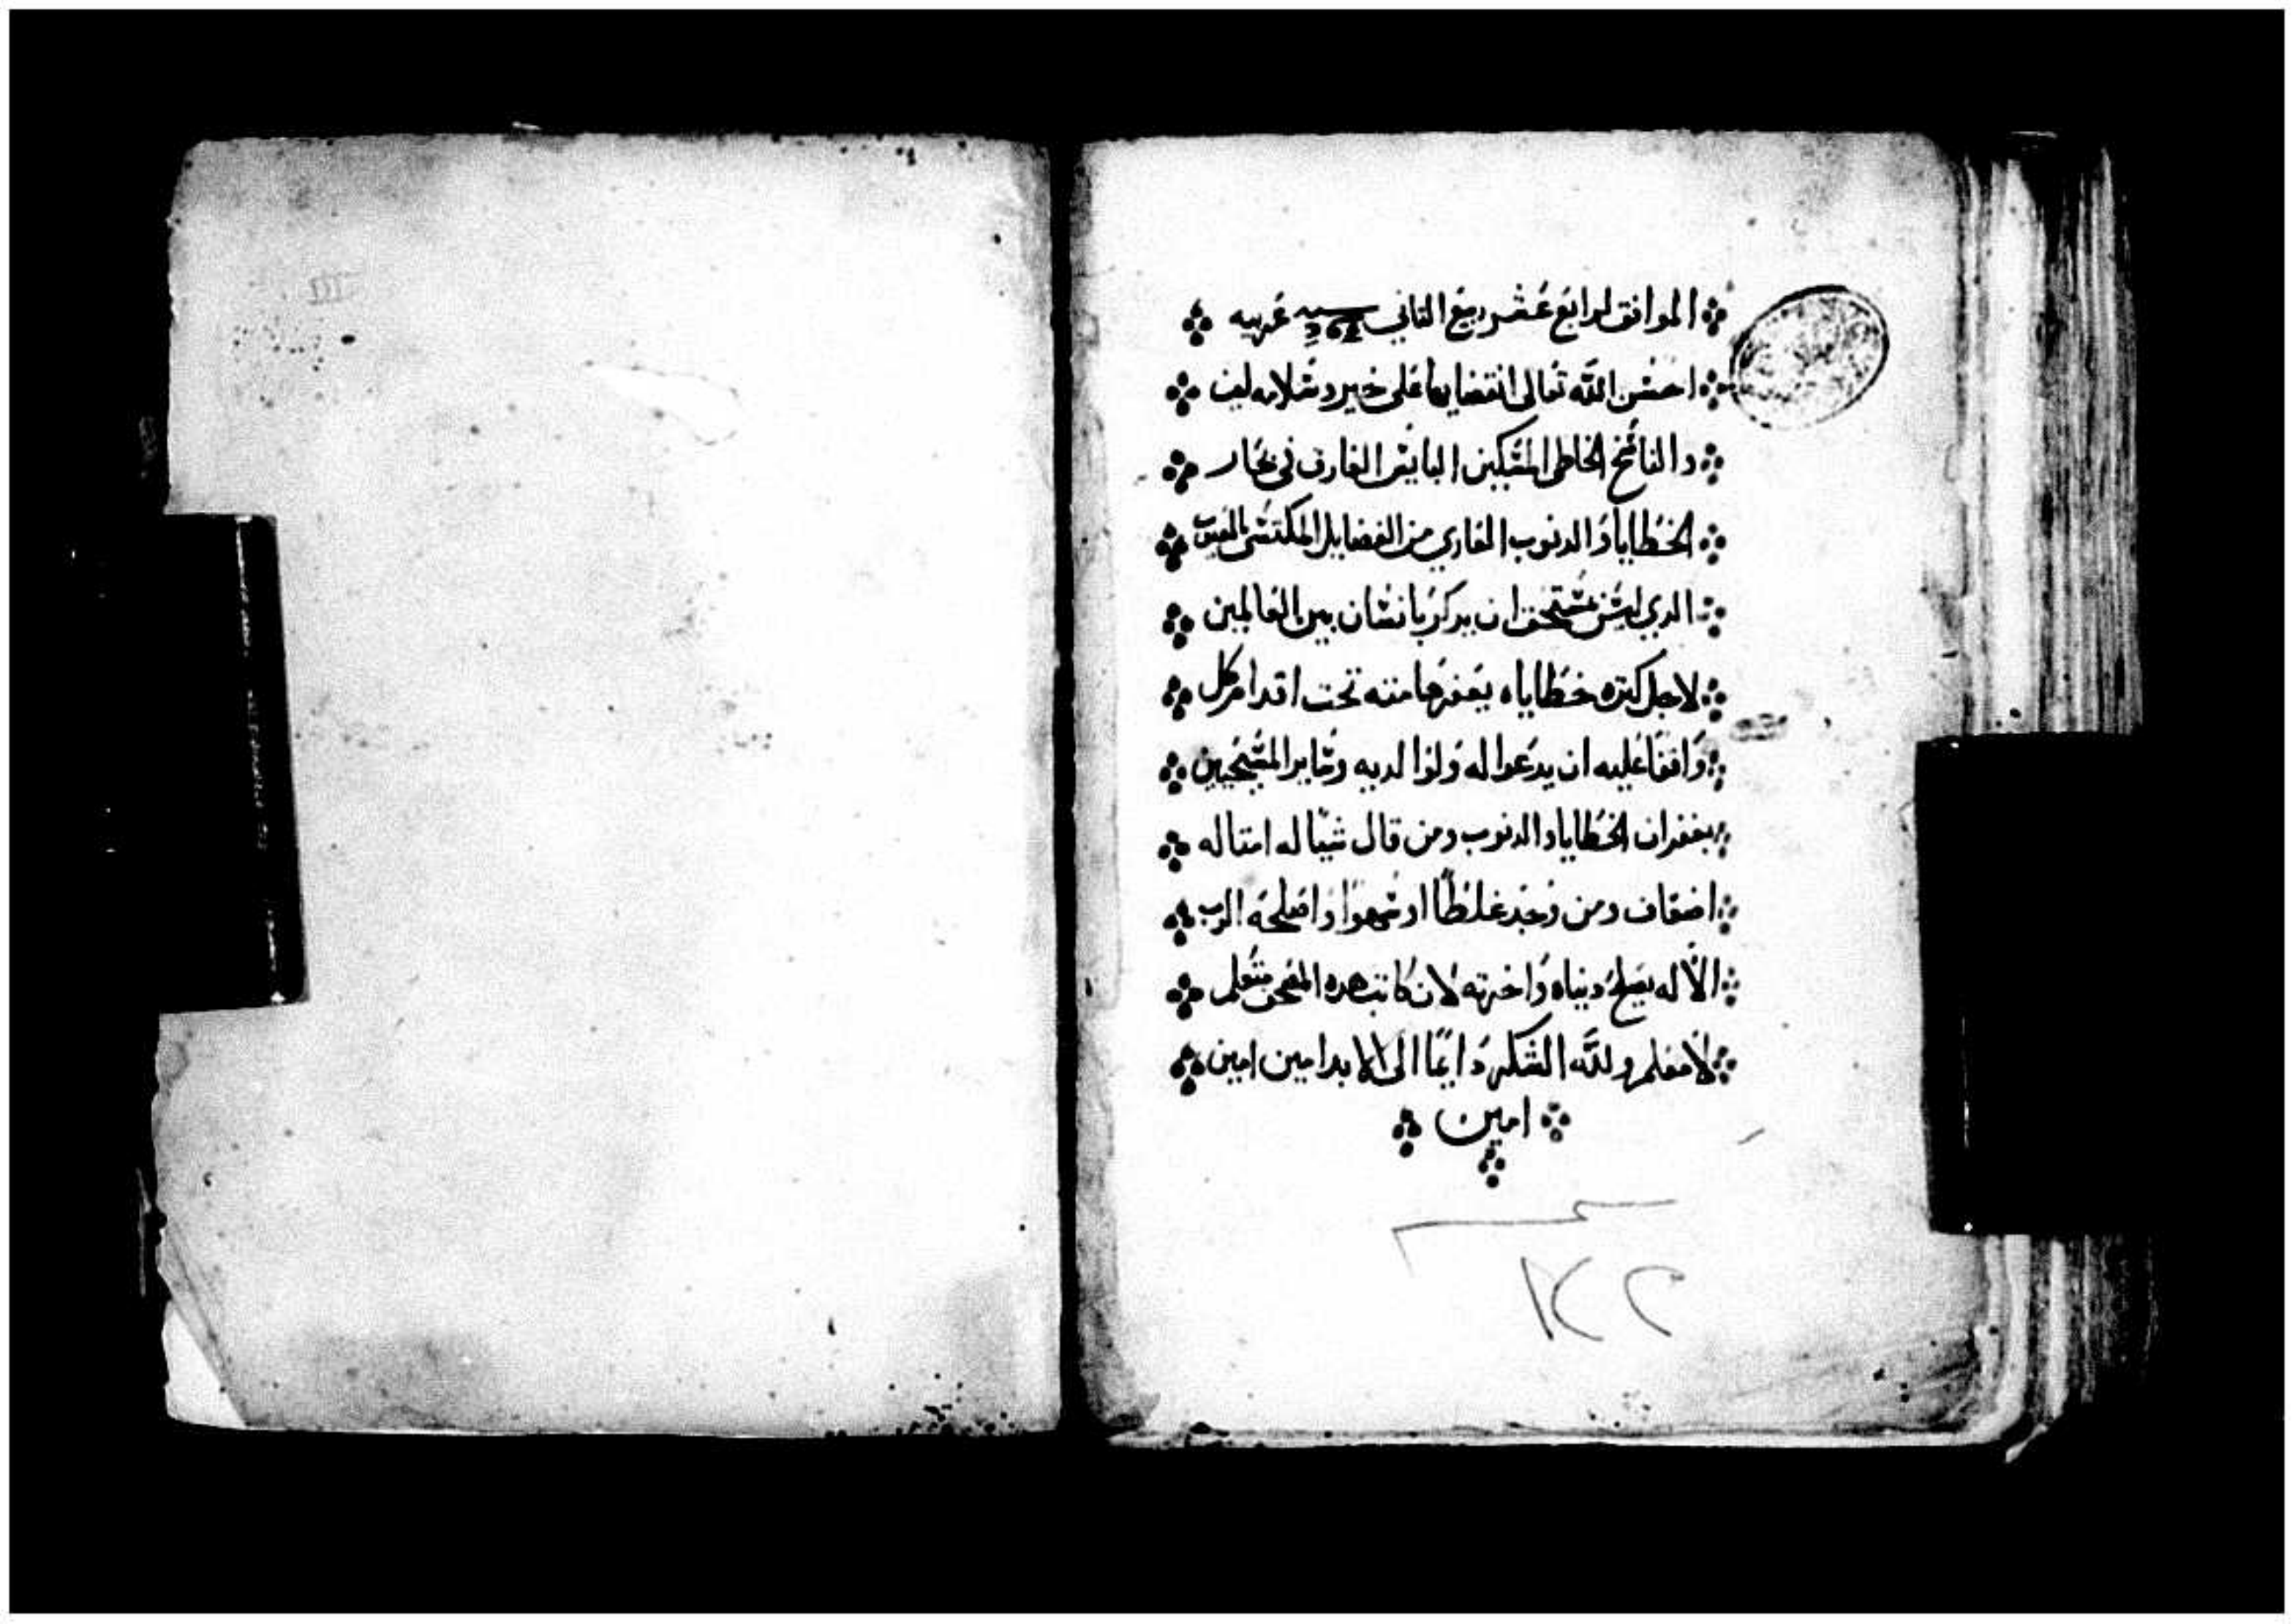 الموافق لرابع عشر ربيع التاني سنه عربيه
احسن الله تعالى انقضايها على خير وسلامه امين
والناسخ الخاطى المسكين البايس الغارق في بحار
الخطايا والدنوب العاري من الفضايل المكتسى بالعيوب
الدي ليس يستحق ان يدكر بانسان بين العالمين
لاجل كترة خطاياه يعفرها منه تحت اقدام كل
واقفا عليه ان يدعوا له ولوالديه وساير المسيحيين
بغفران الخطايا والدنوب ومن قال شيا له امتاله
اضعاف ومن وجد غلطا او سهوا واصلحه الرب
الاله يصلح دنياه واخرته لان كاتب هده متعلم
لا معلم ولله الشكر دايما الى الابد امين امين
امين